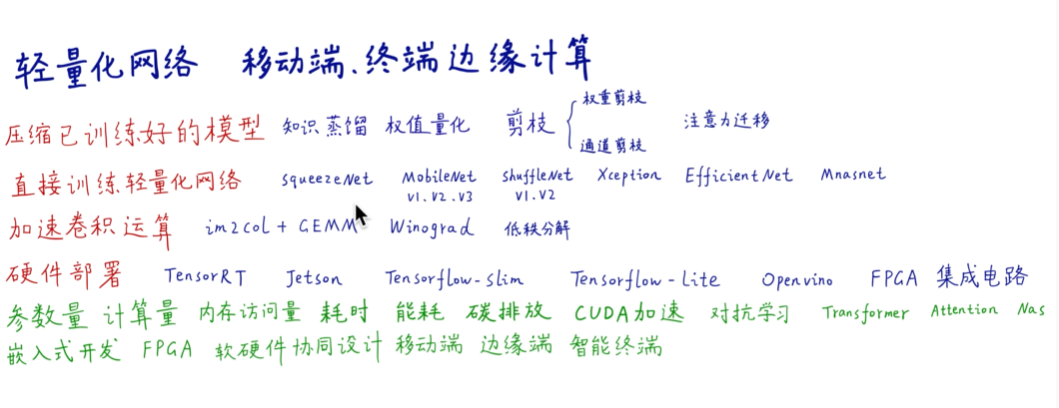 轻量化网络 移动端、终端边缘计算
压缩已训练好的模型 知识蒸馏 权值量化 剪枝 { 权重剪枝 通道剪枝 注意力迁移
直接训练轻量化网络 SqueezeNet MobileNet V1.V2.V3 ShuffleNet V1.V2 Xception EfficientNet Mnasnet
加速卷积运算 im2col + GEMM Winograd 低秩分解
硬件部署 TensorRT Jetson Tensorflow-slim Tensorflow-Lite Openvino FPGA 集成电路
参数量 计算量 内存访问量 耗时 能耗 碳排放 CUDA加速 对抗学习 Transformer Attention Nas
嵌入式开发 FPGA 软硬件协同设计 移动端 边缘端 智能终端